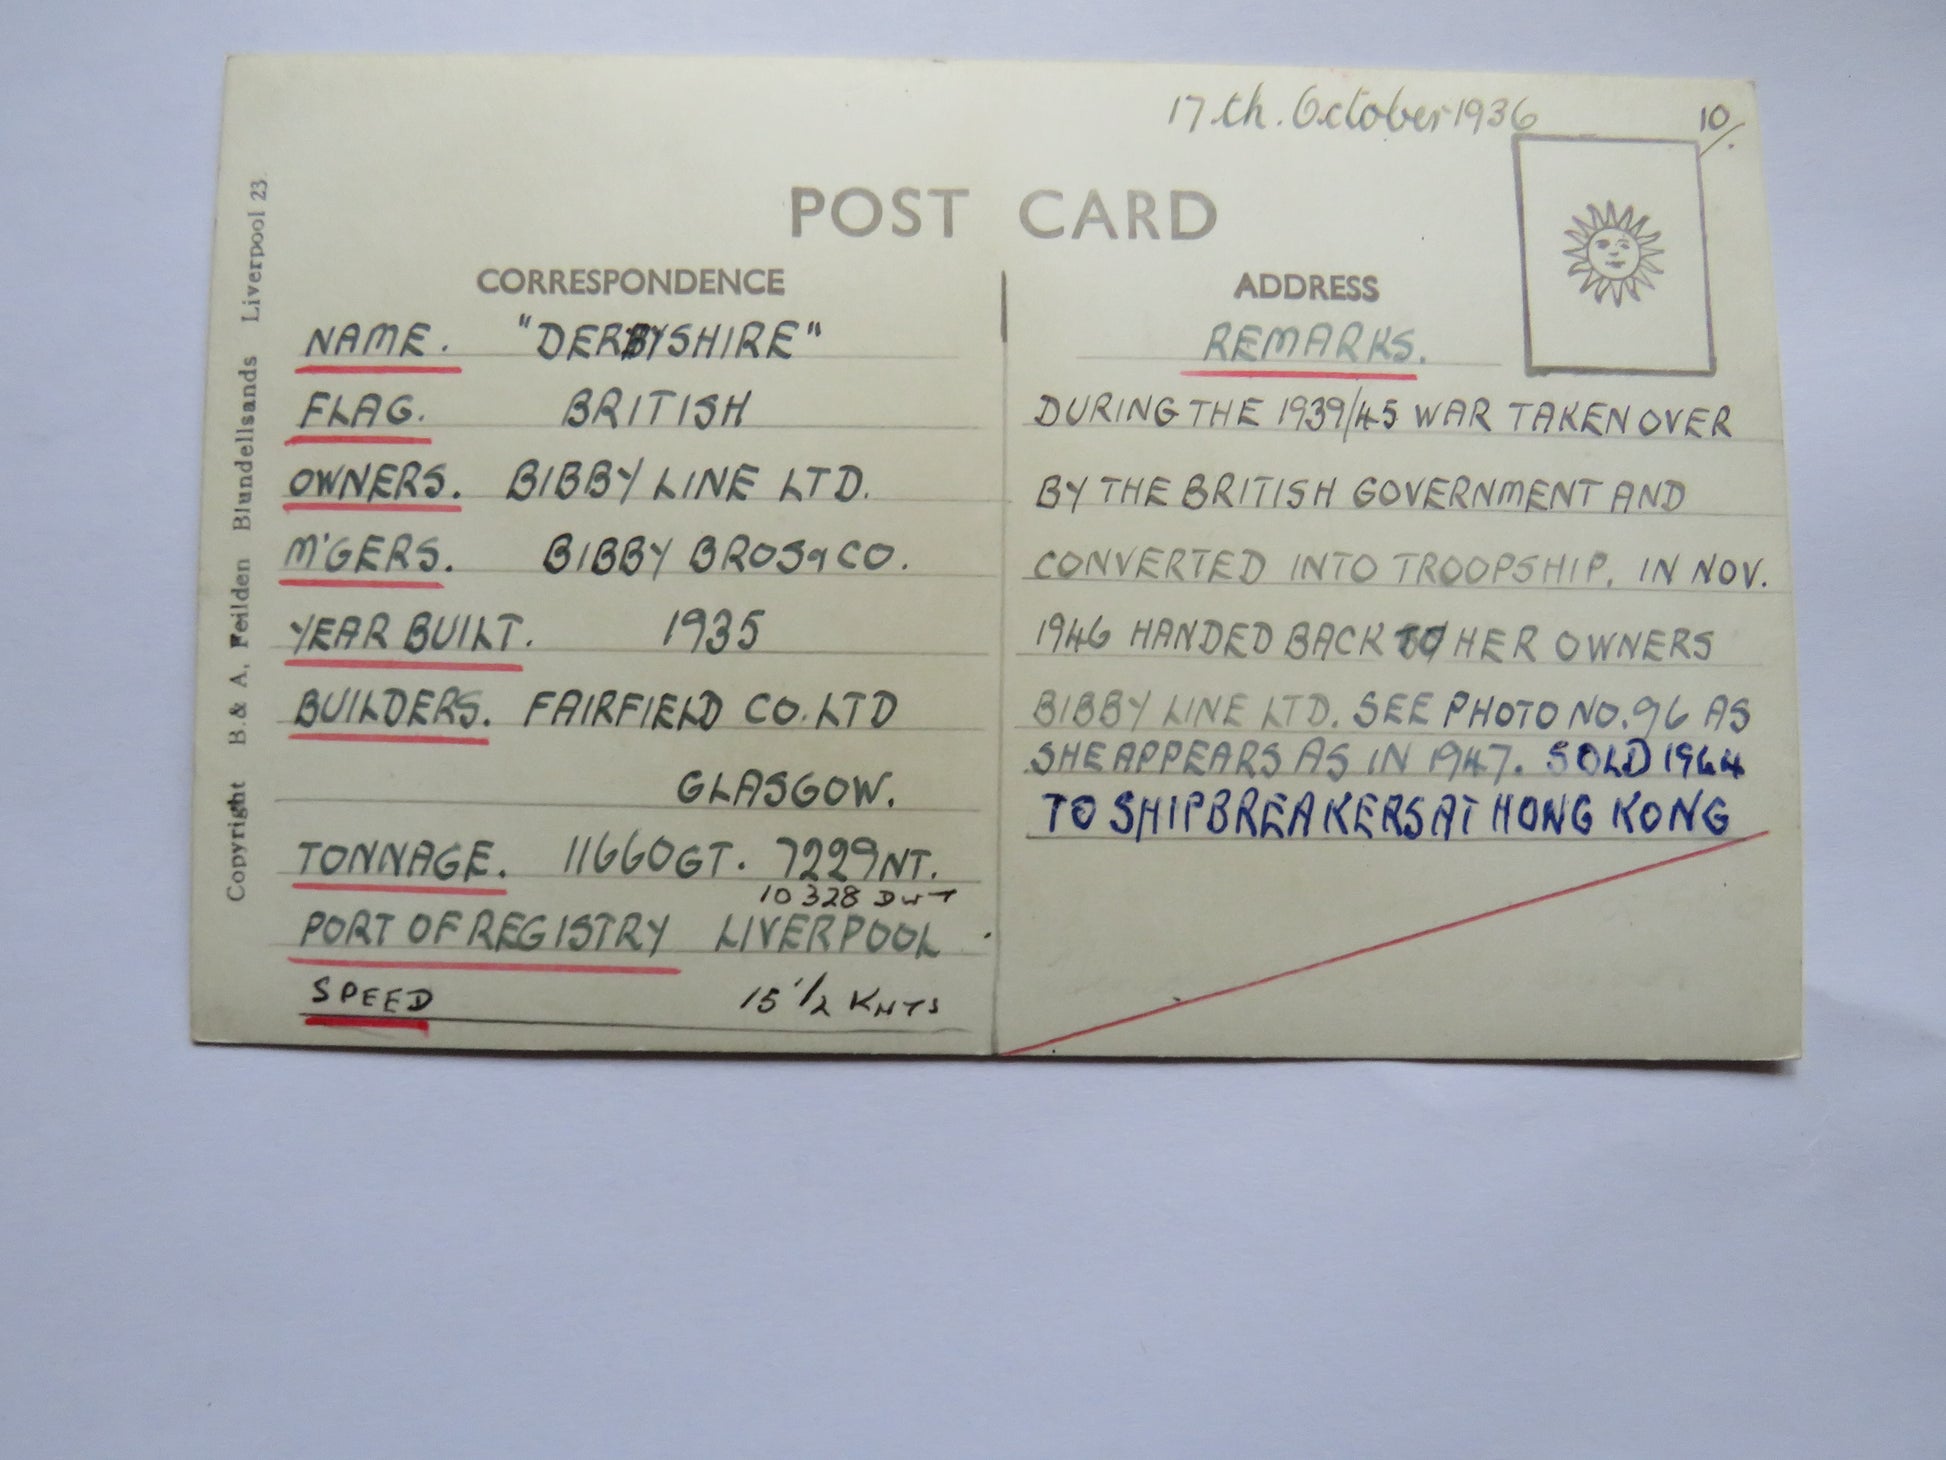 17.th. October 1936
10/.
POST CARD
CORRESPONDENCE
NAME. "DERBYSHIRE"
FLAG. BRITISH
OWNERS. BIBBY LINE LTD.
M'GERS. BIBBY BROS & CO.
YEAR BUILT. 1935
BUILDERS. FAIRFIELD CO. LTD
GLASGOW.
TONNAGE. 11660GT. 7229NT.
10328 DWT
PORT OF REGISTRY LIVERPOOL
SPEED 15 1/2 KNTS
ADDRESS
REMARKS.
DURING THE 1939/45 WAR TAKEN OVER
BY THE BRITISH GOVERNMENT AND
CONVERTED INTO TROOPSHIP. IN NOV.
1946 HANDED BACK TO HER OWNERS
BIBBY LINE LTD. SEE PHOTO NO. 96 AS
SHE APPEARS AS IN 1947. SOLD 1964
TO SHIPBREAKERS AT HONG KONG
Copyright B. & A. Feilden Blundellsands Liverpool 23.